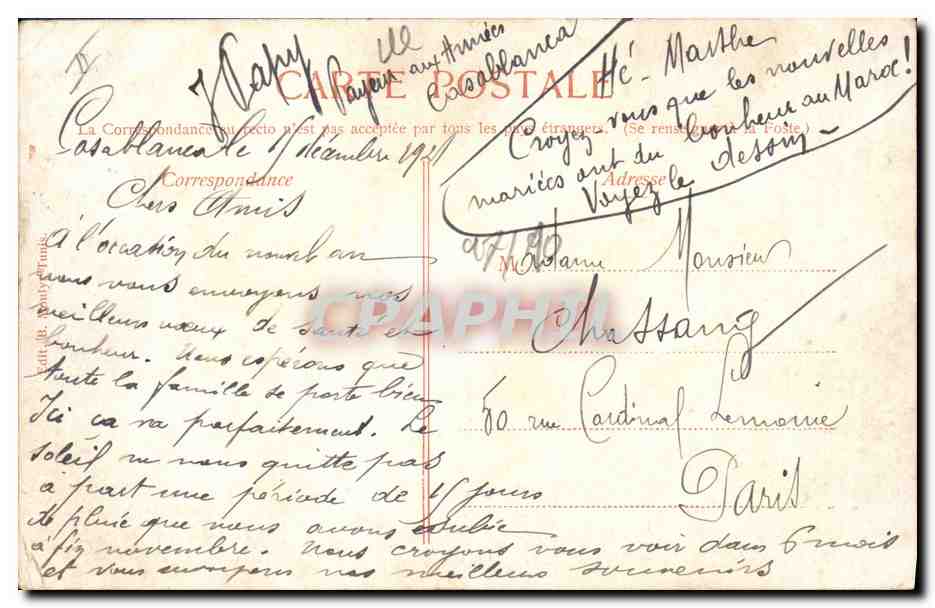 J Papy
Payeur aux Armées
Casablanca
Hé - Marthe
Croyez vous que les nouvelles
mariées ont du bonheur au Maroc!
Voyez le dessin
CARTE POSTALE
La Correspondance au recto n'est pas acceptée par tous les pays étrangers. (Se renseigner à la Poste.)
Casablanca le 15 décembre 1921
Correspondance
Adresse
Chers Amis
A l'occasion du nouvel an
nous vous envoyons nos
meilleurs vœux de santé et
bonheur. Nous espérons que
toute la famille se porte bien
Ici ça va parfaitement. Le
soleil ne nous quitte pas
à part une période de 15 jours
de pluie que nous avons subie
à fin novembre. Nous croyons vous voir dans 6 mois
et vous envoyons nos meilleurs souvenirs
Madame Monsieur
Chassang
50 rue Cardinal Lemoine
Paris
CPAPHIL
Tunis.